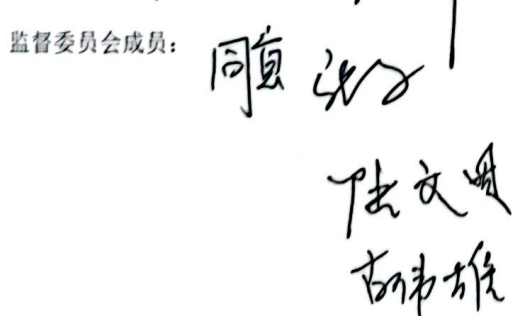 监督委员会成员：同意
陆文明
胡伟雄